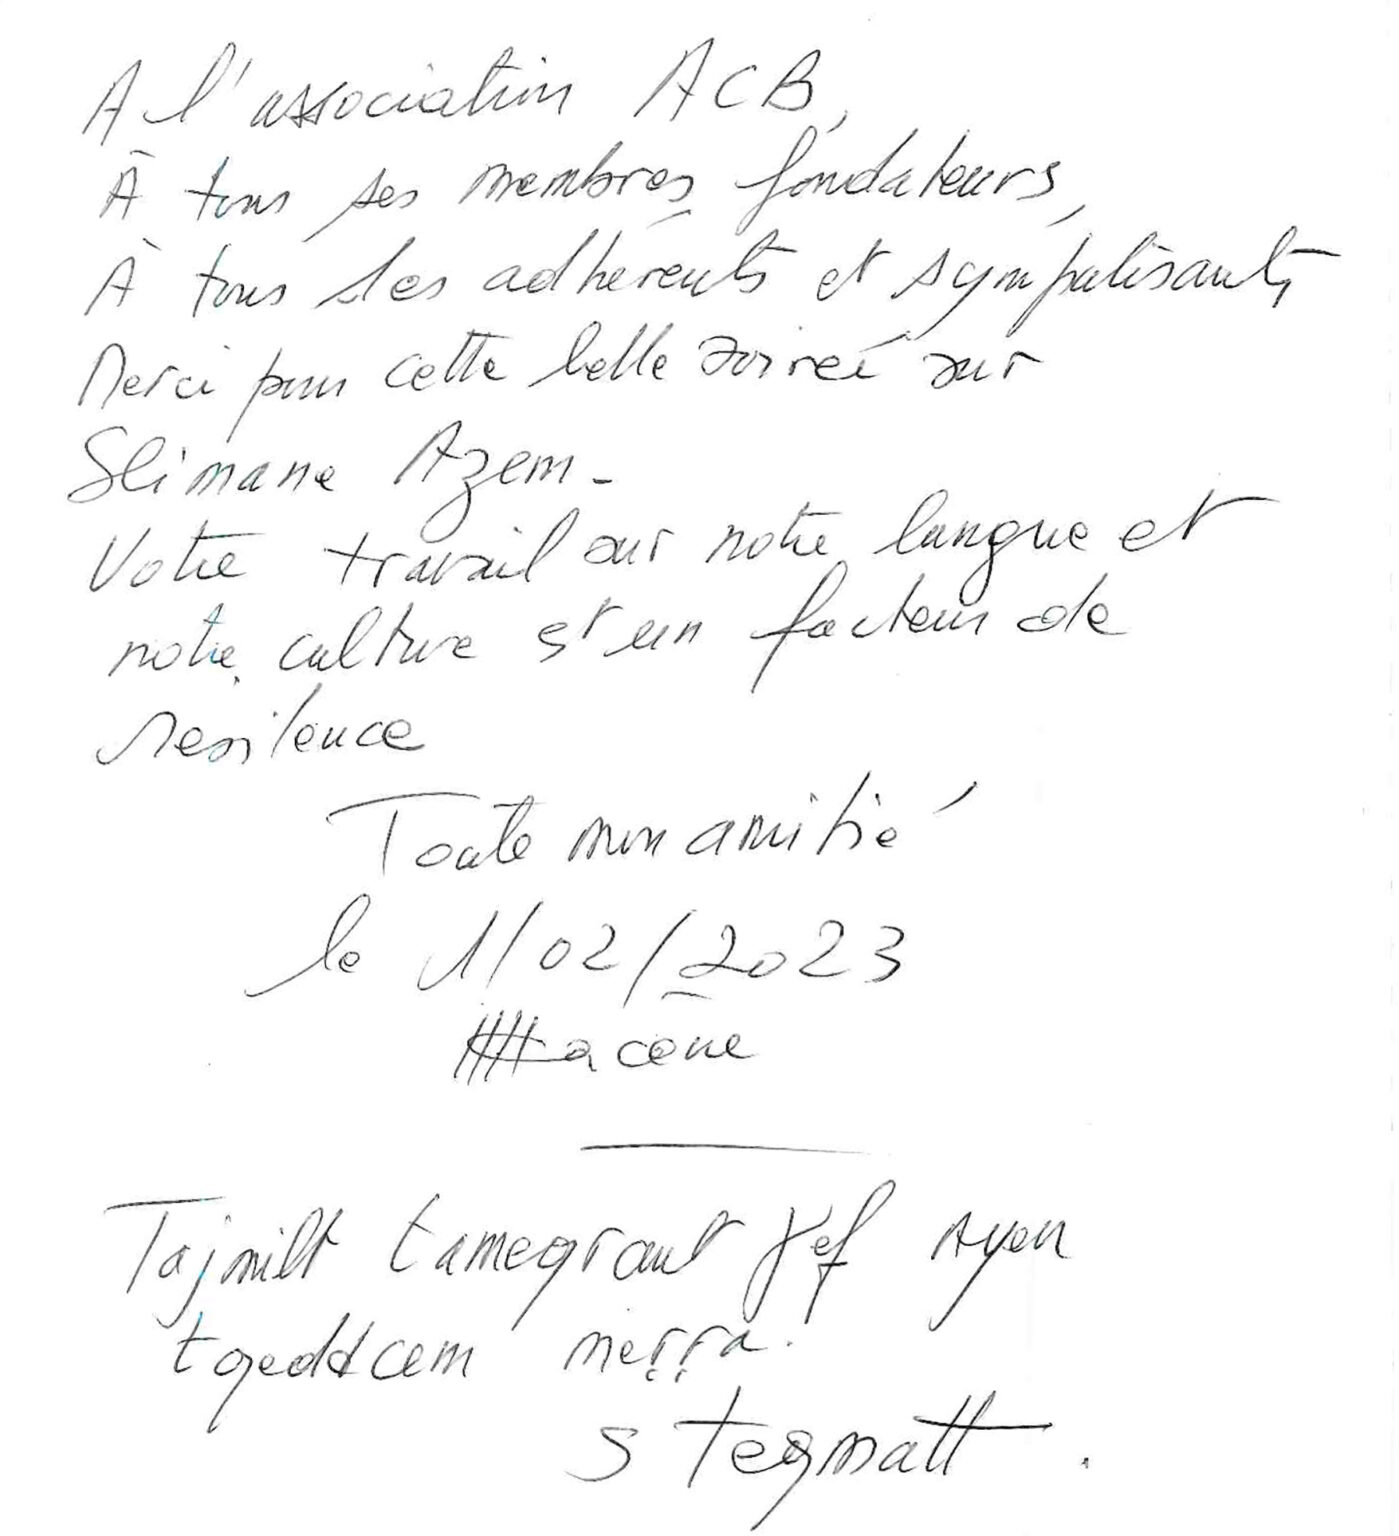 A l'association ACB,
À tous ses membres fondateurs,
À tous ses adhérents et sympatisants,
Merci pour cette belle soireé sur
Slimane Azem -
Votre travail sur notre langue et
notre culture est un facteur de
resilence
Toute mon amitié
le 1/02/2023
Hacene
Tajmilt tameqrant ɣef ayen
tqeddcem meṛṛa.
s tegmatt.